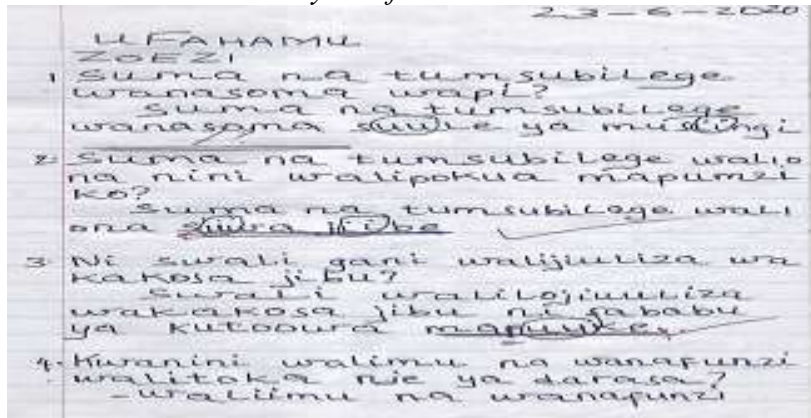 23-6-2020
UFAHAMU
ZOEZI
1 Suma na tumsubilege
wanasoma wapi?
Suma na tumsubilege
wanasoma ya musingi
2. Suma na tumsubilege walio
na nini walipokua mapumzi
ko?
Suma na tumsubilege wali
ona
3. Ni swali gani walijiuliza wa
kakosa jibu?
Swali walilojiuuliza
wakakosa jibu ni sababu
ya
4. Kwanini walimu na wanafunzi
walitoka nje ya darasa?
- waliimu na wanafunzi